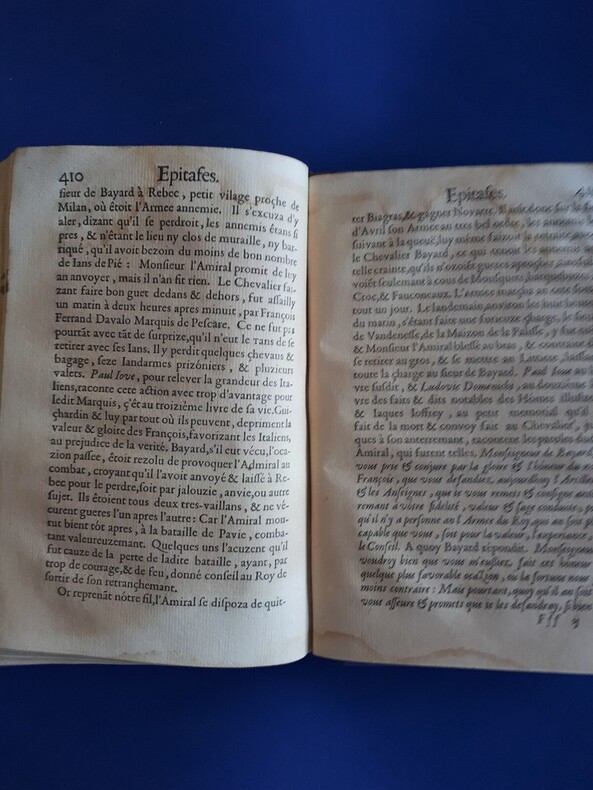 410 Epitafes.
sieur de Bayard à Rebec, petit vilage proçhe de
Milan, où étoit l'Armee annemie. Il s'excuza d'y
aler, dizant qu'il se perdroit, les annemis étans si
pres, & n'étant le lieu ny clos de muraille, ny bar-
riqué, qu'il avoit bezoin du moins de bon nombre
de Ians de Pié : Monsieur l'Amiral promit de luy
an anvoyer, mais il n'an fit rien. Le Chevalier fai-
zant faire bon guet dedans & dehors, fut assailly
un matin à deux heures apres minuit, par François
Ferrand Davalo Marquis de Pescare. Ce ne fut pas
pourtãt avec tãt de surprize, qu'il n'eut le tans de se
retirer avec ses Ians. Il y perdit quelques çhevaus &
bagage, seze Iandarmes prizóniers, & pluzieurs
valets. Paul Iove, pour relever la grandeur des Ita-
liens, raconte cete action avec trop d'avantage pour
ledit Marquis, ç'ét au troizième livre de sa vie. Gui-
çhardin & luy par tout où ils peuvent, depriment la
valeur & gloire des François, favorizant les Italiens,
au prejudice de la verité. Bayard, s'il eut vécu, l'oca-
zion passee, étoit rezolu de provoquer l'Admiral au
combat, croyant qu'il l'avoit anvoyé & laissé à Re-
bec pour le perdre, soit par jalouzie, anvie, ou autre
sujet. Ils étoient tous deux tres-vaillans, & ne vé-
curent gueres l'un apres l'autre : Car l'Amiral mou-
rut bien tót apres, à la bataille de Pavie, comba-
tant valeureuzemant. Quelques uns l'acuzent qu'il
fut cauze de la perte de ladite bataille, ayant, par
trop de courage, & de feu, donné conseil au Roy de
sortir de son retrançhemant.
Or reprenãt nótre fil, l'Amiral se dispoza de quit-
Epitafes.
ter Biagras, & gagner Novarre. Il
d'Avril son Armee an tres bel ordre, les annemis le
suivant à la queuë, luy méme faizoit la
le Chevalier Bayard, ce qui tenoit les annemis an
telle crainte, qu'ils n'ozoiẽt gueres aproçher,
voiẽt seulemant à cous de Mousquets,
Croc, & Fauconeaux. L'armee marçha an cete
tout un jour. Le landemain, anviron les huit heures
du matin, s'étant faite une furieuze çharge, le sieur
de Vandenesse, de la Maizon de la Palisse, y fut
& Monsieur l'Amiral blessé au bras, & contraint de
se retirer au gros, & se metre an Litiere, laissant
toute la çharge au sieur de Bayard. Paul Iove au
vre susdit, & Ludovic Domenichi, au
vre des faits & dits notables des Hommes illustres
& Iaques Ioffrey, au petit memorial qu'il
fait de la mort & convoy fait au Chevalier,
ques à son anterremant, racontent les paroles du
Amiral, qui furent telles. Monseigneur de Bayard, je
vous prie & conjure par la gloire & l'honeur du nom
François, que vous defandiez aujourdhuy l'Artillerie
& les Anseignes, que je vous remets & consigne antiere-
remant à vótre fidelité, valeur & sage conduite, puis
qu'il n'y a personne an l'Armee du Roy, qui an soit plus
capable que vous, soit pour la valeur, l'experiance, &
le Conseil. A quoy Bayard répondit. Monseigneur, je
voudroy bien que vous m'eussiez fait cet honeur an
quelque plus favorable ocazion, ou la fortune nous fut
moins contraire : Mais pourtant, quoy qu'il an soit, je
vous asseure & promets que je les defandray, si bien
Fff